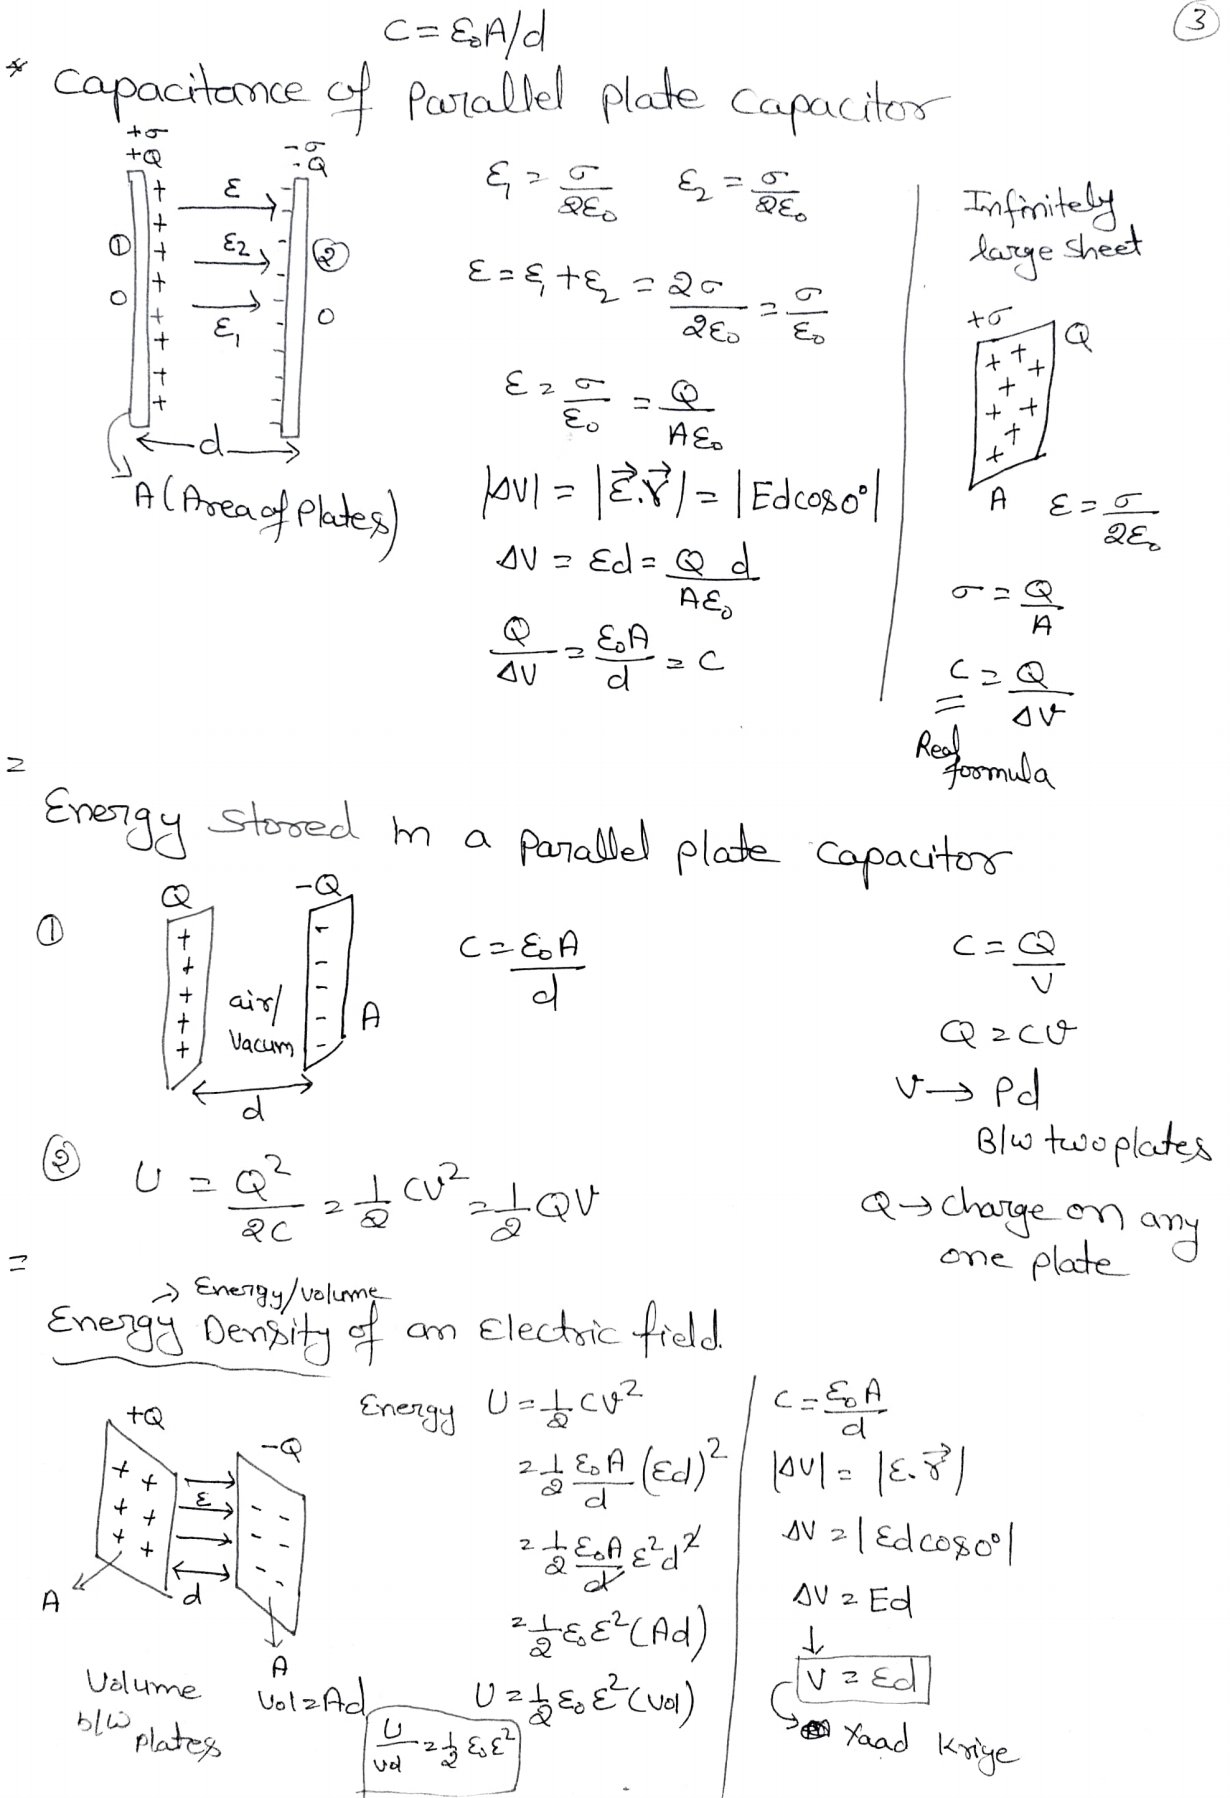 3
C = ε₀A/d
* Capacitance of Parallel plate capacitor
+σ
+Q
-σ
-Q
+ + + + + + + + +
ε
ε2
ε1
① ②
0 0
d
A (Area of Plates)
ε1 = σ/2ε₀ ε2 = σ/2ε₀
ε = ε1 + ε2 = 2σ/2ε₀ = σ/ε₀
ε = σ/ε₀ = Q/Aε₀
|ΔV| = |ε⃗.r⃗| = |Edcos0°|
ΔV = Ed = Q d/Aε₀
Q/ΔV = ε₀A/d = C
Infinitely
large sheet
+σ
Q
+ + + + + + + + +
A ε = σ/2ε₀
σ = Q/A
C = Q/ΔV
Real
formula
=
Energy stored in a parallel plate capacitor
①
Q -Q
+ + + + +
- - - - -
air/
Vacum
A
d
C = ε₀A/d
C = Q/V
Q = CV
V → Pd
B/w two plates
Q → charge on any
one plate
② U = Q²/2C = 1/2 CV² = 1/2 QV
=
→ Energy/volume
Energy Density of an Electric field.
+Q
-Q
+ + + + + +
- - - - - -
ε
d
A
A
Volume
b/w
plates
Vol = Ad
Energy U = 1/2 CV²
= 1/2 ε₀A/d (Ed)²
= 1/2 ε₀A/d ε²d²
= 1/2 ε₀ε²(Ad)
U = 1/2 ε₀ε²(Vol)
U/vol = 1/2 ε₀ε²
C = ε₀A/d
|ΔV| = |ε.r⃗|
ΔV = |Edcos0°|
ΔV = Ed
↓
V = Ed
Yaad Kriye